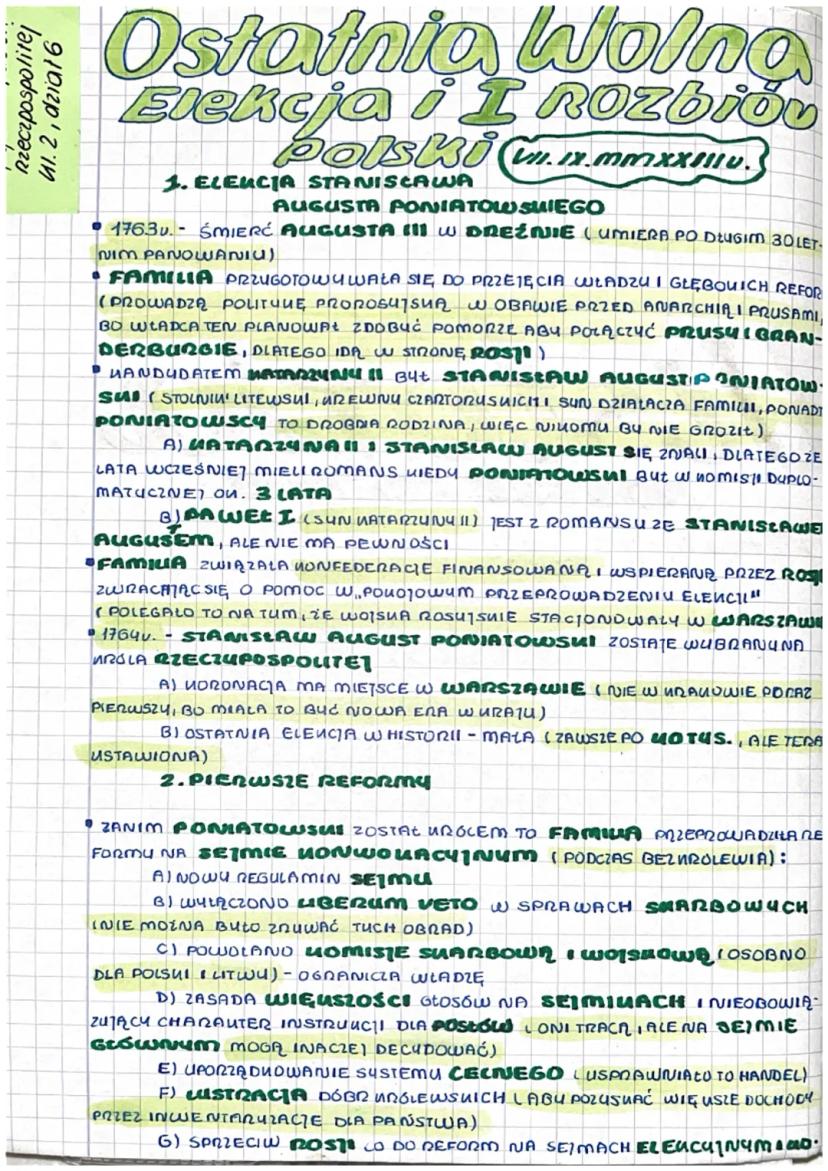 rzeczpospolitej
kl. 2, dział 6
Ostatnia Wolna
Elekcja i I Rozbiór
Polski VII. IX. MMXXIII r.
1. ELEKCJA STANISŁAWA
AUGUSTA PONIATOWSKIEGO
• 1763r. - ŚMIERĆ AUGUSTA III W DREŹNIE (UMIERA PO DŁUGIM 30 LET-
NIM PANOWANIU)
• FAMILIA PRZYGOTOWYWAŁA SIĘ DO PRZEJĘCIA WŁADZY I GŁĘBOKICH REFOR
(PROWADZĄ POLITYKĘ PROROSYJSKĄ W OBAWIE PRZED ANARCHIĄ I PRUSAMI,
BO WŁADCA TEN PLANOWAŁ ZDOBYĆ POMORZE ABY POŁĄCZYĆ PRUSY I BRAN-
DERBURGIE, DLATEGO IDĄ W STRONĘ ROSJI)
• KANDYDATEM KATARZYNY II BYŁ STANISŁAW AUGUST PONIATOW-
SKI (STOLNIK LITEWSKI, KREWNY CZARTORYSKICH I SYN DZIAŁACZA FAMILII, PONADT
PONIATOWSCY TO DROBNA RODZINA, WIĘC NIKOMU BY NIE GROZIŁ)
A) KATARZYNA II I STANISLAW AUGUST SIĘ ZNALI, DLATEGO ŻE
LATA WCZEŚNIEJ MIELI ROMANS KIEDY PONIATOWSKI BYŁ W KOMISJI DYPLO-
MATYCZNEJ OK. 3 LATA
B) PAWEŁ I (SYN KATARZYNY II) JEST Z ROMANSU ZE STANISŁAWE
AUGUSEM, ALE NIE MA PEWNOŚCI
• FAMILIA ZWIĄZAŁA KONFEDERACJE FINANSOWANĄ I WSPIERANĄ PRZEZ ROSJ
ZWRACAJĄC SIĘ O POMOC W „POKOJOWYM PRZEPROWADZENIU ELEKCJI"
(POLEGAŁO TO NA TYM, ŻE WOJSKA ROSYJSKIE STACJONOWAŁY W WARSZAWI
• 1764r. - STANISŁAW AUGUST PONIATOWSKI ZOSTAJE WYBRANY NA
KRÓLA RZECZYPOSPOLITEJ
A) KORONACJA MA MIEJSCE W WARSZAWIE (NIE W KRAKOWIE PO RAZ
PIERWSZY, BO MIAŁA TO BYĆ NOWA ERA W KRAJU)
B) OSTATNIA ELEKCJA W HISTORII - MAŁA (ZAWSZE PO 40 TYS., ALE TERA
USTAWIONA)
2. PIERWSZE REFORMY
• ZANIM PONIATOWSKI ZOSTAŁ KRÓLEM TO FAMILIA PRZEPROWADZIŁA RE
FORMY NA SEJMIE KONWOKACYJNYM (PODCZAS BEZKRÓLEWIA):
A) NOWY REGULAMIN SEJMU
B) WYŁĄCZONO LIBERUM VETO W SPRAWACH SKARBOWYCH
(NIE MOŻNA BYŁO ZRYWAĆ TYCH OBRAD)
C) POWOŁANO KOMISJE SKARBOWĄ I WOJSKOWĄ (OSOBNO
DLA POLSKI I LITWY) - OGRANICZA WŁADZĘ
D) ZASADA WIĘKSZOŚCI GŁOSÓW NA SEJMIKACH I NIEOBOWIĄ-
ZUJĄCY CHARAKTER INSTRUKCJI DLA POSŁÓW (ONI TRACĄ, ALE NA SEJMIE
GŁÓWNYM MOGĄ INACZEJ DECYDOWAĆ)
E) UPORZĄDKOWANIE SYSTEMU CELNEGO (USPRAWNIAŁO TO HANDEL)
F) LUSTRACJA DÓBR KRÓLEWSKICH (ABY POZYSKAĆ WIĘKSZE DOCHODY
PRZEZ INWENTARYZACJE DLA PAŃSTWA)
G) SPRZECIW ROSJI CO DO REFORM NA SEJMACH ELEKCYJNYM I KO-